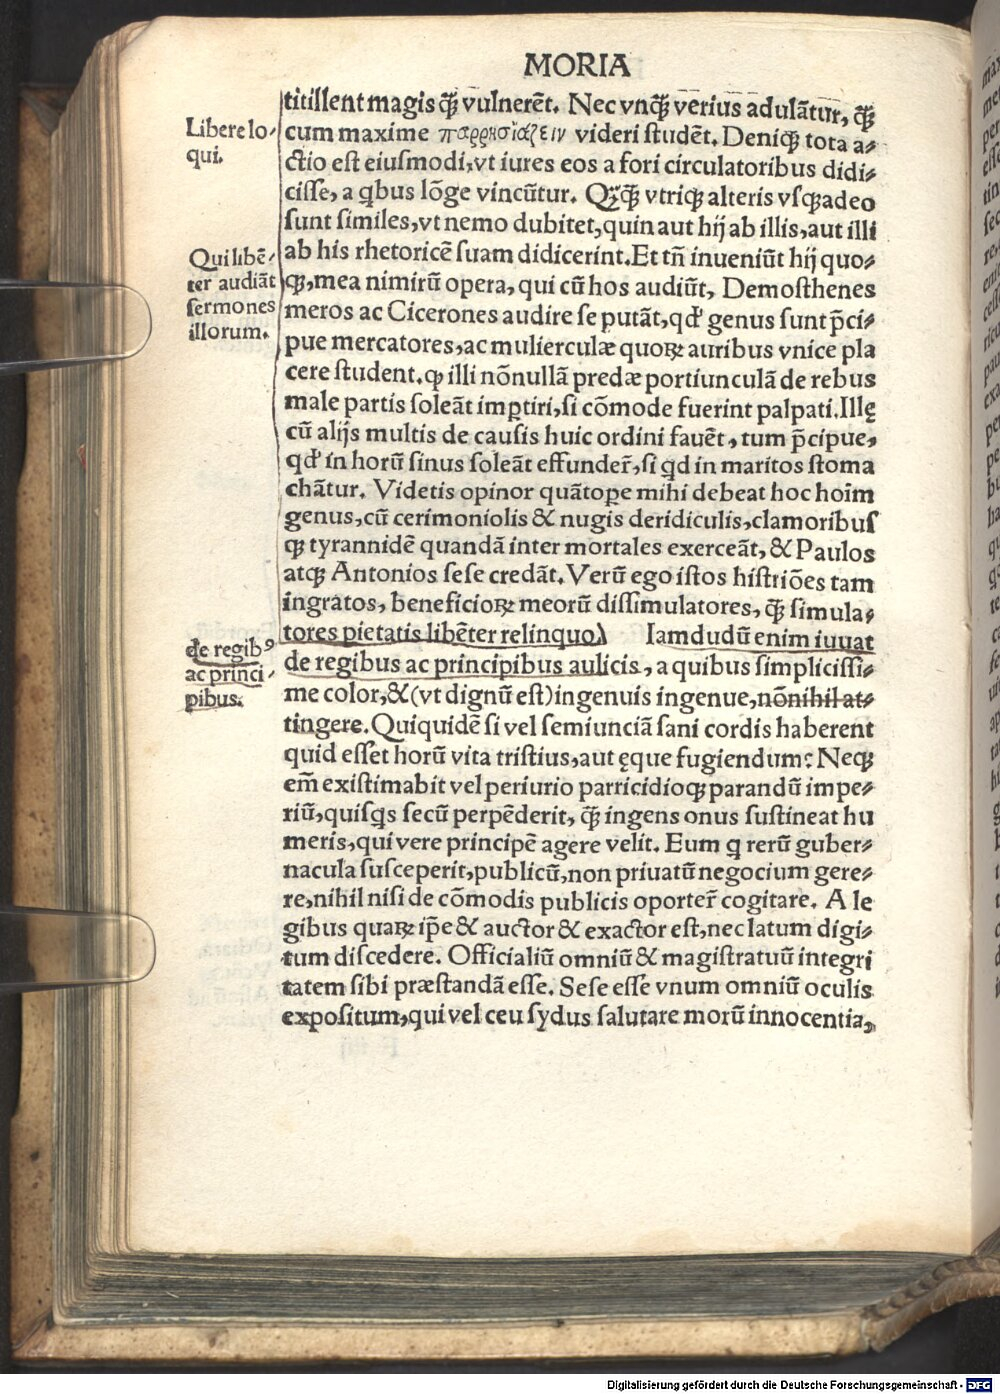 MORIA
titillent magis q̃ȝ vulnerēt. Nec vnq̃ȝ verius adulātur, q̃ȝ
cum maxime παρρησιάζειν videri studēt. Deniqȝ tota a⸗
ctio est eiusmodi, vt iures eos a fori circulatoribus didi⸗
cisse, a qbus lōge vincūtur. Qȝq̃ȝ vtriqȝ alteris vsqȝadeo
sunt similes, vt nemo dubitet, quin aut hij ab illis, aut illi
ab his rhetoricē suam didicerint. Et tñ inueniūt hij quo⸗
qȝ, mea nimirū opera, qui cū hos audiūt, Demosthenes
meros ac Cicerones audire se putāt, qd' genus sunt p̄ci⸗
pue mercatores, ac mulierculæ quoꝝ auribus vnice pla
cere student. ꝙ illi nōnullā predæ portiunculā de rebus
male partis soleāt imꝑtiri, si cōmode fuerint palpati. Illę
cū alijs multis de causis huic ordini fauēt, tum p̄cipue,
qd' in horū sinus soleāt effunder̄, si qd in maritos stoma
chātur. Videtis opinor quātoꝑe mihi debeat hoc hoīm
genus, cū cerimoniolis & nugis deridiculis, clamoribus
qȝ tyrannidē quandā inter mortales exerceāt, & Paulos
atqȝ Antonios sese credāt. Verū ego istos histriōes tam
ingratos, beneficioꝝ meorū dissimulatores, q̃ȝ simula⸗
tores pietatis libēter relinquo) Iamdudū enim iuuat
de regibus ac principibus aulicis, a quibus simplicissi⸗
me color, & (vt dignū est) ingenuis ingenue, nōnihil at⸗
tingere. Quiquidē si vel semiunciā sani cordis haberent
quid esset horū vita tristius, aut ęque fugiendum? Neqȝ
em̄ existimabit vel periurio parricidioqȝ parandū impe⸗
riū, quisqs secū perpēderit, q̃ȝ ingens onus sustineat hu
meris, qui vere principē agere velit. Eum q rerū guber⸗
nacula susceperit, publicū, non priuatū negocium gere⸗
re, nihil nisi de cōmodis publicis oporter̄ cogitare. A le
gibus quaꝝ ip̄e & auctor & exactor est, nec latum digi⸗
tum discedere. Officialiū omniū & magistratuū integri
tatem sibi præstandā esse. Sese esse vnum omniū oculis
expositum, qui vel ceu sydus salutare morū innocentia,
Libere lo⸗
qui.
Qui libē⸗
ter audiāt
sermones
illorum.
de regibꝰ
ac princi⸗
pibus.
Digitalisierung gefördert durch die Deutsche Forschungsgemeinschaft - DFG